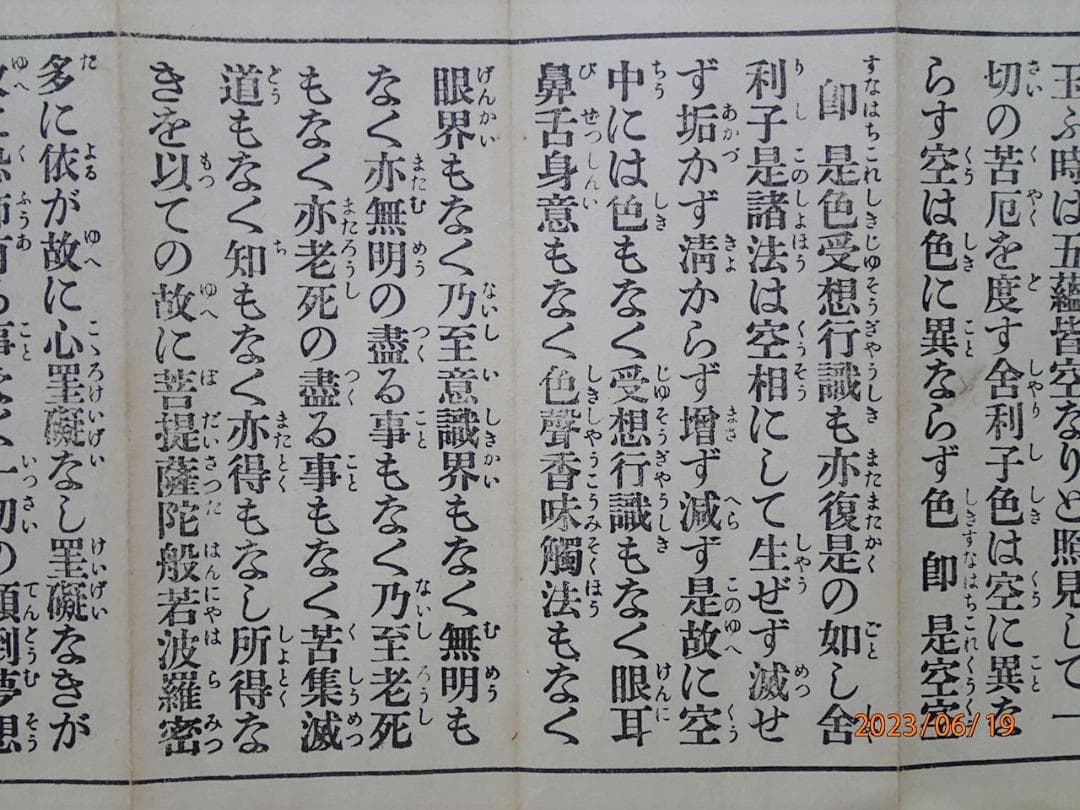 玉ふ時は五蘊皆空なりと照見して一
切の苦厄を度す舍利子色は空に異な
らす空は色に異ならず色卽是空空
卽是色受想行識も亦復是の如し舍
利子是諸法は空相にして生ぜず滅せ
ず垢かず淸からず增ず減ず是故に空
中には色もなく受想行識もなく眼耳
鼻舌身意もなく色聲香味觸法もなく
眼界もなく乃至意識界もなく無明も
なく亦無明の盡る事もなく乃至老死
もなく亦老死の盡る事もなく苦集滅
道もなく知もなく亦得もなし所得な
きを以ての故に菩提薩陀般若波羅密
多に依が故に心罣礙なし罣礙なきが
故に恐怖有る事なく一切の顚倒夢想
2023/06/19